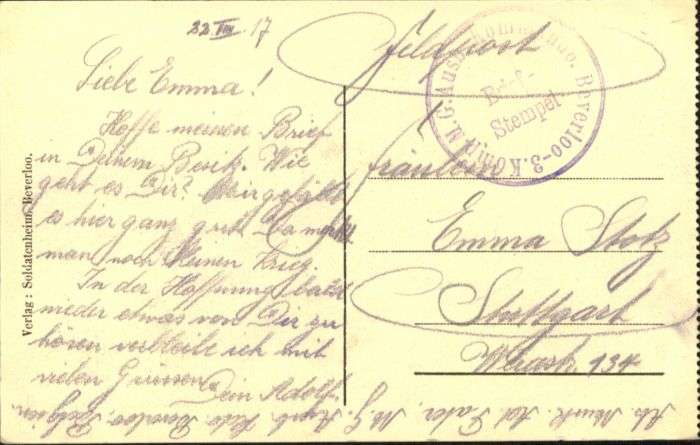 22 VIII. 17
Feldpost
Liebe Emma!
Hoffe meinen Brief
in Deinem Besitz. Wie
geht es Dir? Mir gefällt
es hier ganz gut. Da merkt
man noch keinen Krieg.
In der Hoffnung bald
wieder etwas von Dir zu
hören verbleibe ich mit
vielen Grüssen
Dein Adolf.
Brief-
Stempel
Fräulein
Emma Stolz
Stuttgart
134
Verlag: Soldatenheim, Beverloo.
Beverloo Belgien.